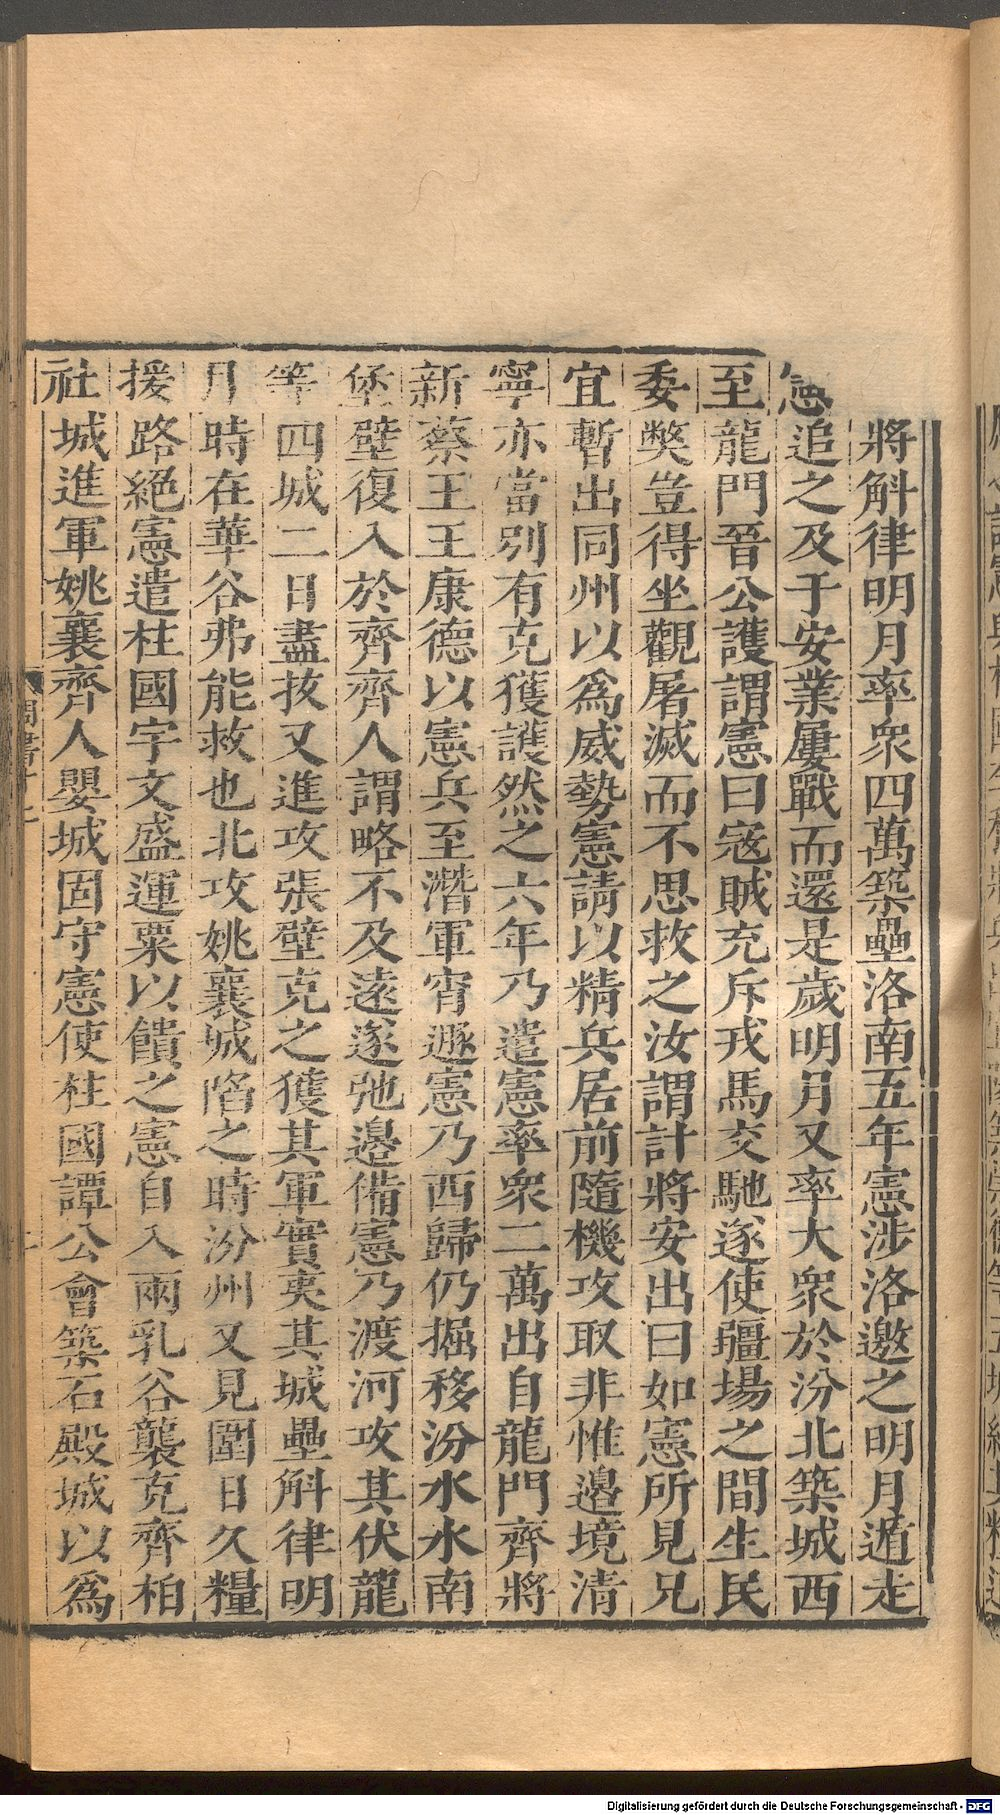 將斛律明月率衆四萬築壘洛南五年憲涉洛邀之明月遁走
憲追之及于安業屢戰而還是歲明月又率大衆於汾北築城西
至龍門晉公護謂憲曰寇賊充斥戎馬交馳遂使疆場之間生民
委獘豈得坐觀屠滅而不思救之汝謂計將安出曰如憲所見兄
宜暫出同州以爲威勢憲請以精兵居前隨機攻取非惟邉境清
寧亦當別有克獲護然之六年乃遣憲率衆二萬出自龍門齊將
新蔡王王康德以憲兵至潛軍宵遯憲乃西歸仍掘移汾水水南
堡壁復入於齊齊人謂略不及遠遂弛邉備憲乃渡河攻其伏龍
等四城二日盡抜又進攻張壁克之獲其軍實夷其城壘斛律明
月時在華谷弗能救也北攻姚襄城陷之時汾州又見圍日久糧
援路絕憲遣柱國宇文盛運粟以饋之憲自入兩乳谷襲克齊柏
社城進軍姚襄齊人嬰城固守憲使柱國譚公會築石殿城以爲
Digitalisierung gefördert durch die Deutsche Forschungsgemeinschaft - DFG